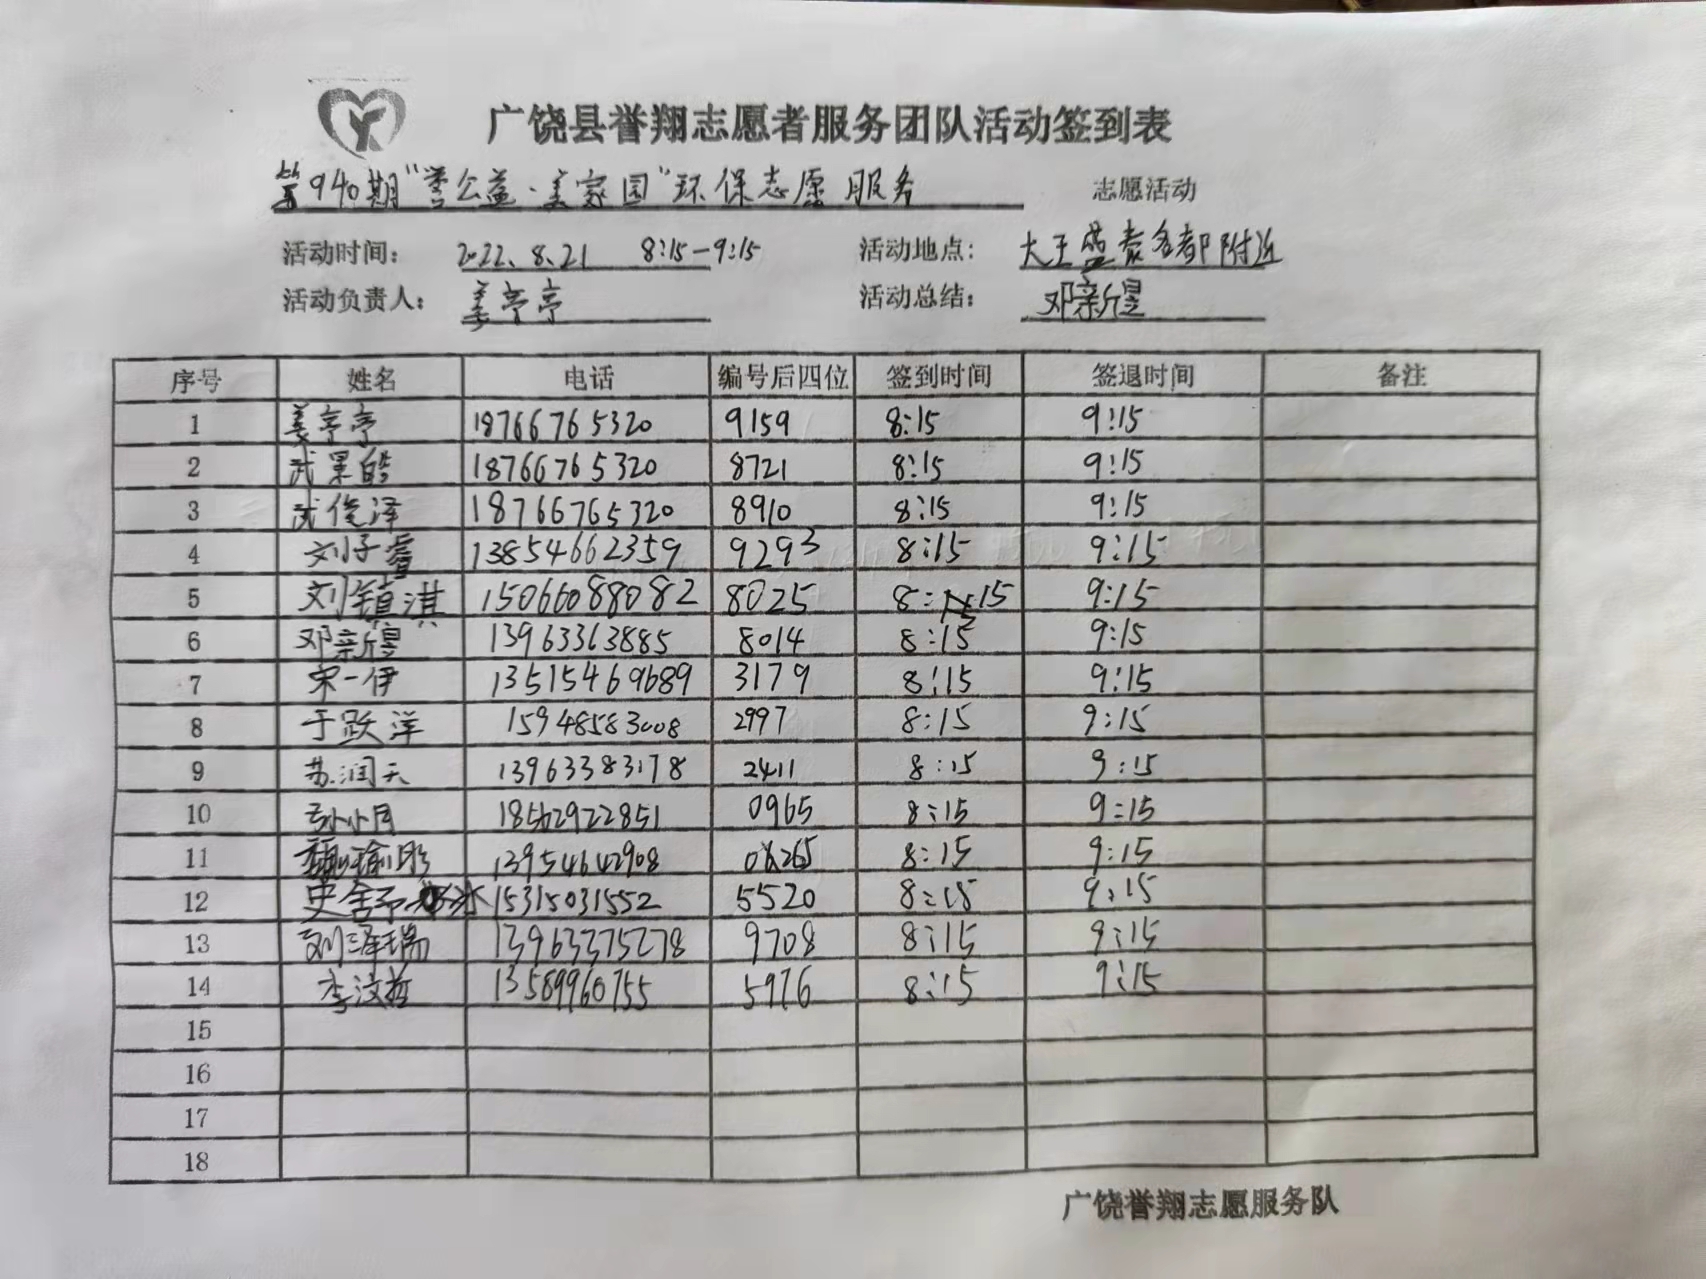 广饶县誉翔志愿者服务团队活动签到表
第940期"誉公益·美家园"环保志愿服务 志愿活动
活动时间: 2022、8、21 8:15-9:15 活动地点: 大王盛泰名都附近
活动负责人: 姜亭亭 活动总结: 邓新昱
序号 姓名 电话 编号后四位 签到时间 签退时间 备注
1 姜亭亭 18766765320 9159 8:15 9:15
2 武杲皓 18766765320 8721 8:15 9:15
3 武俊泽 18766765320 8910 8:15 9:15
4 刘子睿 13854662359 9293 8:15 9:15
5 刘镇淇 15066088082 8025 8:15 9:15
6 邓新昱 13963363885 8014 8:15 9:15
7 宋一伊 13515469689 3179 8:15 9:15
8 于跃洋 15948583008 2997 8:15 9:15
9 苏润天 13963383178 2411 8:15 9:15
10 孙小月 18562922851 0965 8:15 9:15
11 13954642908 8:15 9:15
12 15315031552 5520 8:15 9:15
13 刘泽瑞 13963375278 9708 8:15 9:15
14 李汶哲 13589960755 5976 8:15 9:15
15
16
17
18
广饶誉翔志愿服务队